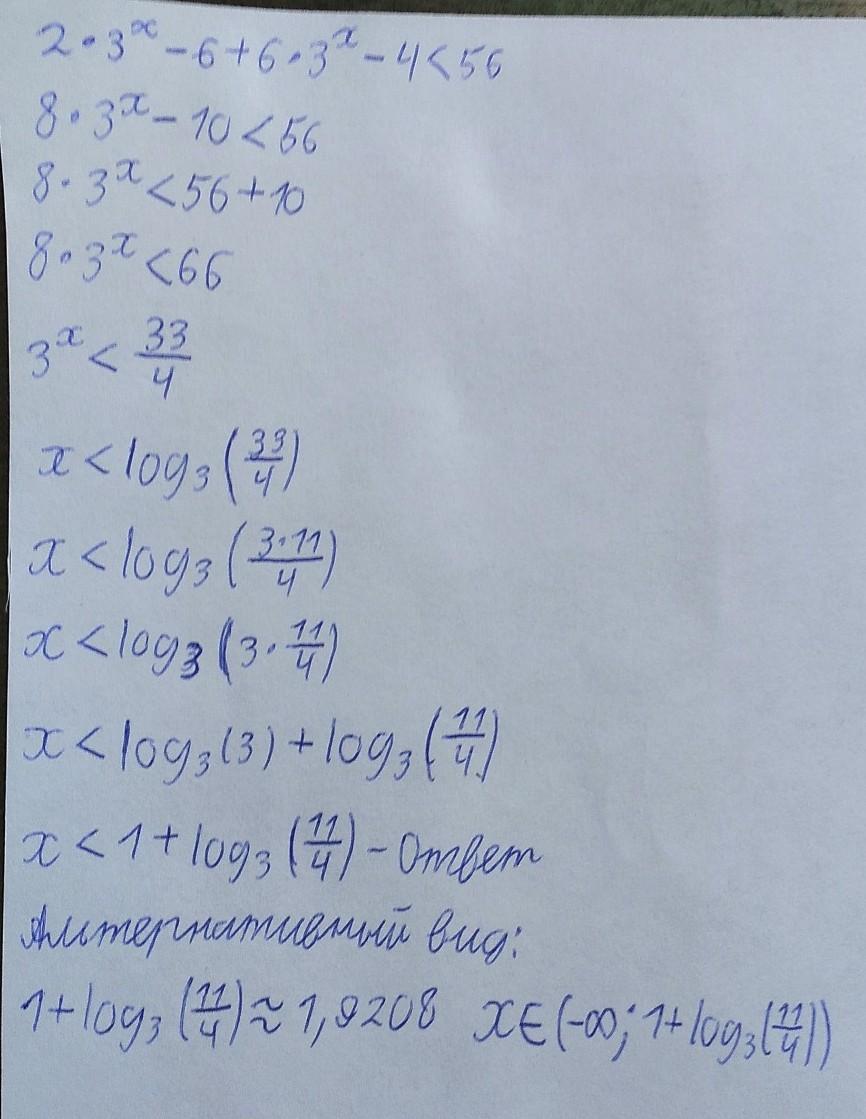 2·3^x-6+6·3^x-4<56
8·3^x-10<56
8·3^x<56+10
8·3^x<66
3^x<33/4
x<log₃(33/4)
x<log₃(3·11/4)
x<log₃(3·11/4)
x<log₃(3)+log₃(11/4)
x<1+log₃(11/4)-Ответ
Альтернативный вид:
1+log₃(11/4)≈1,9208 x∈(-∞;1+log₃(11/4))